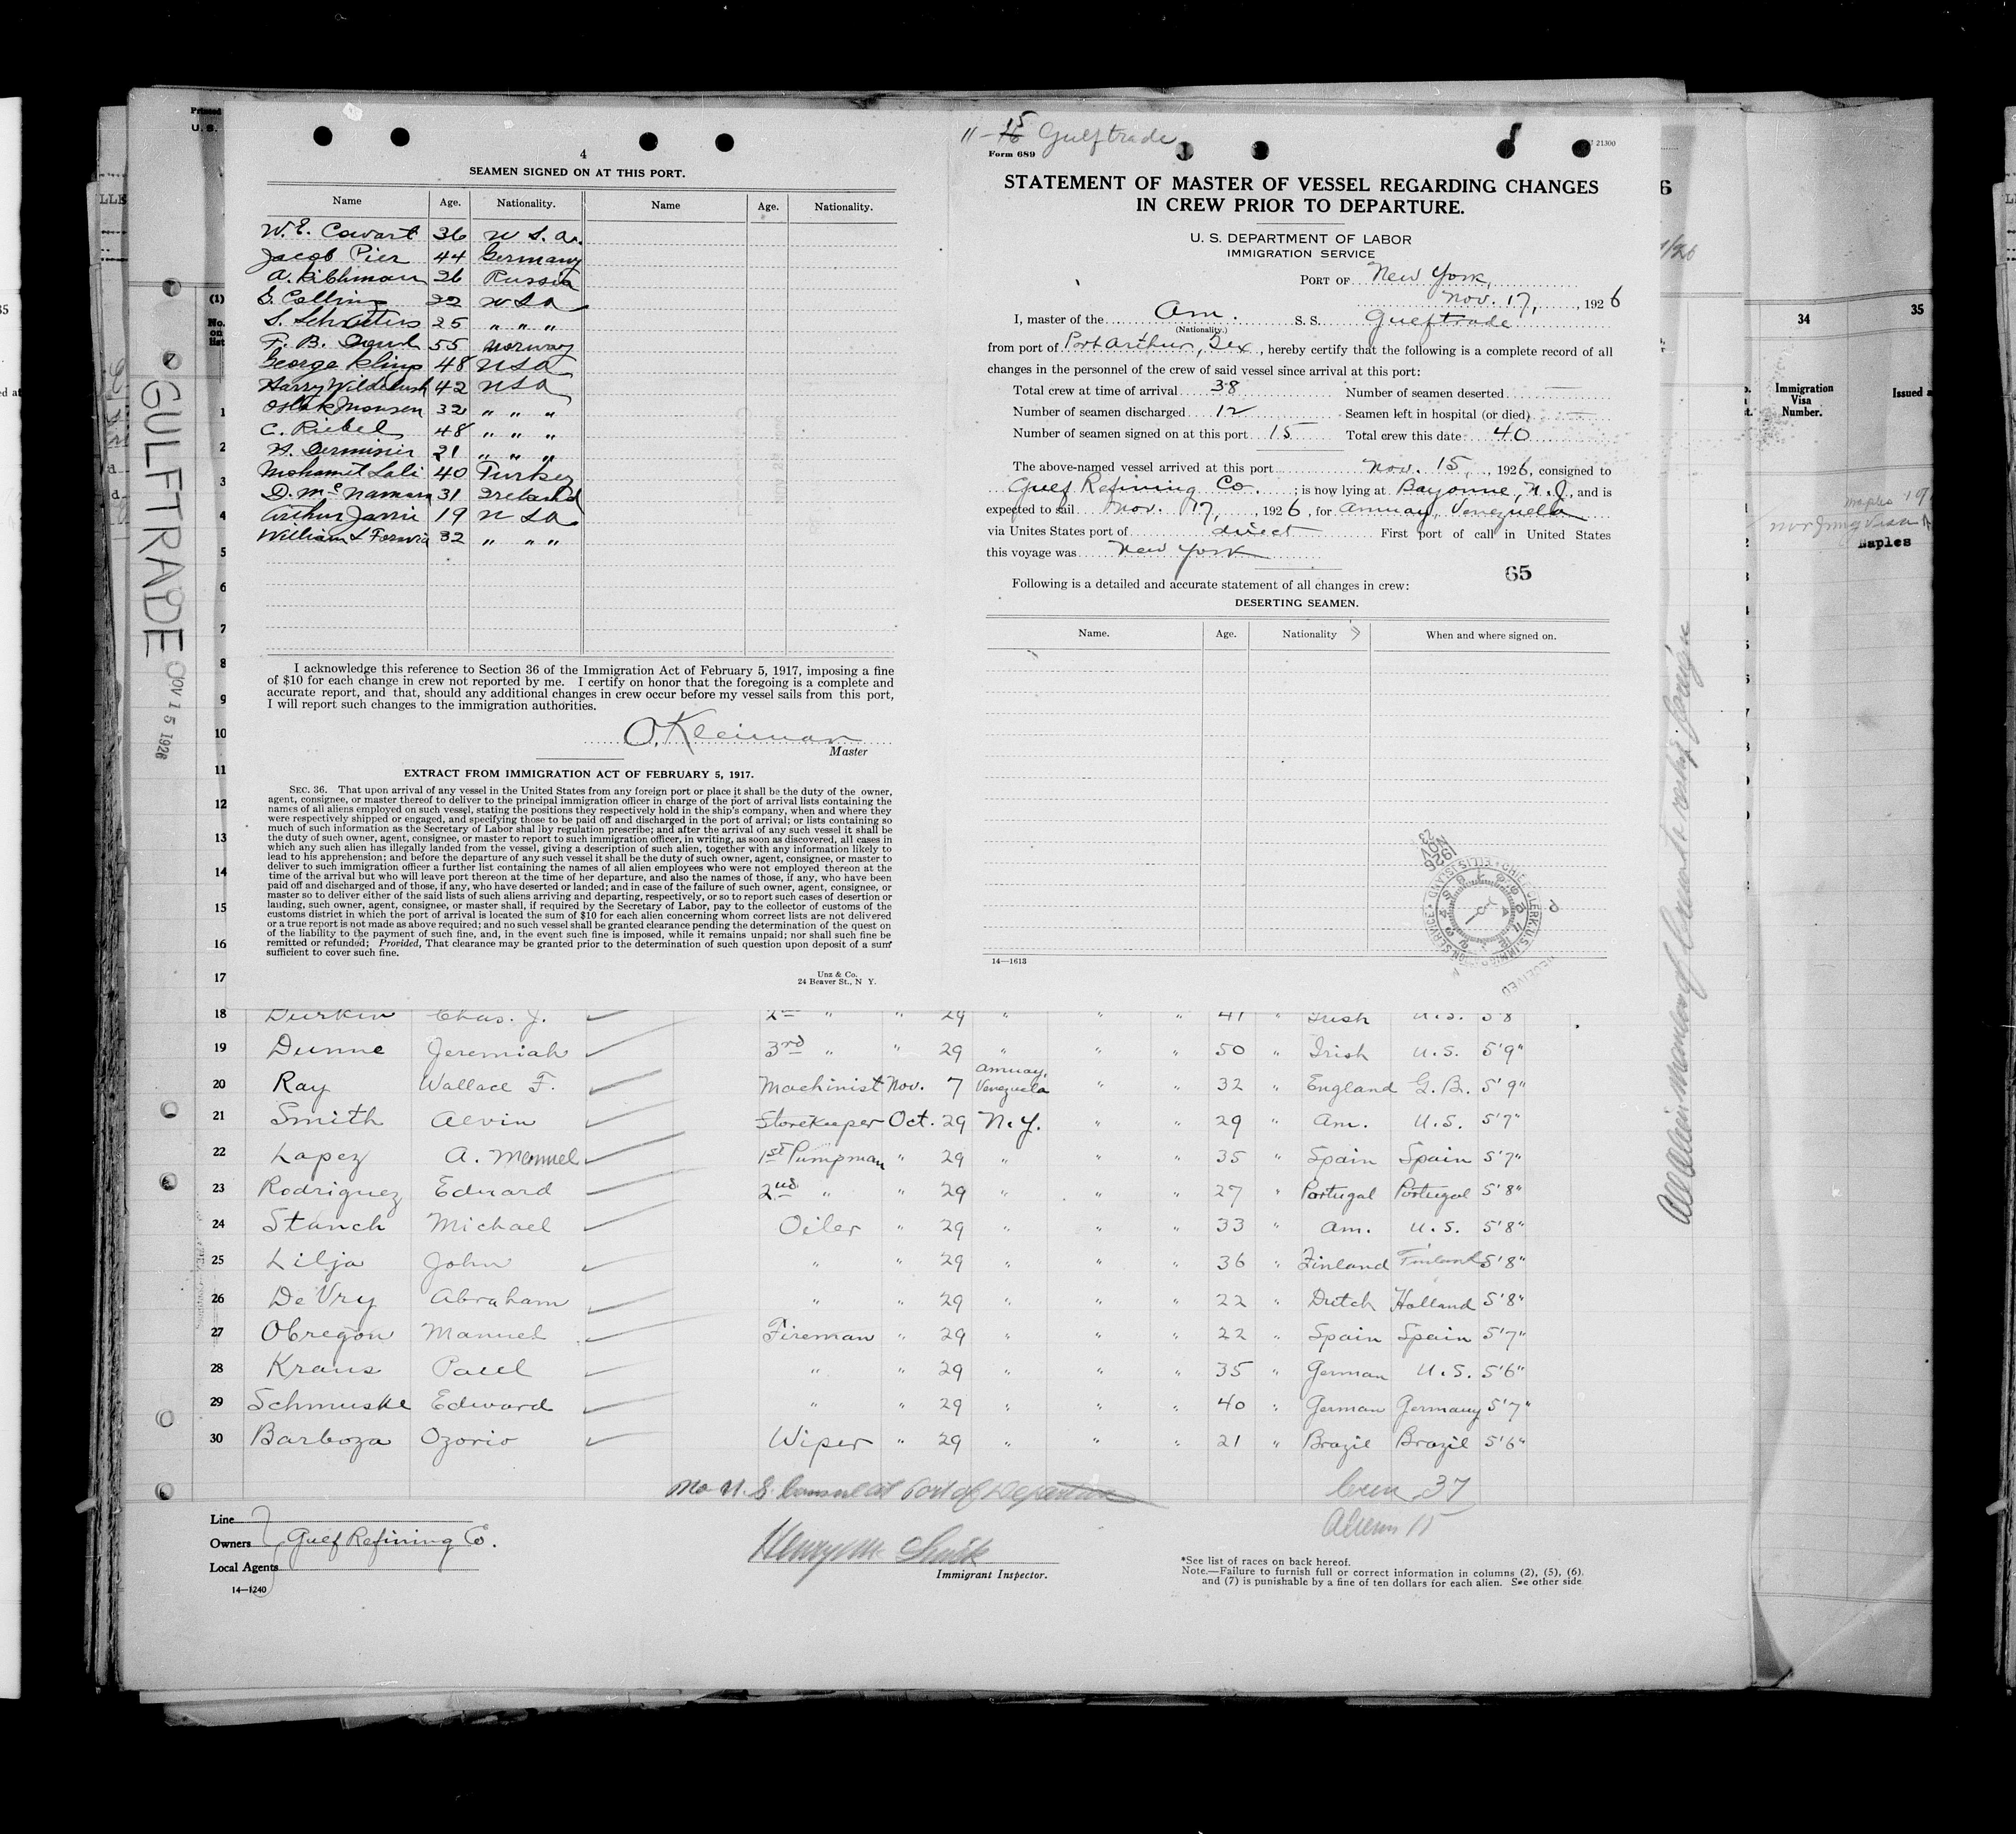 4
SEAMEN SIGNED ON AT THIS PORT.
Name Age. Nationality. Name Age. Nationality.
W. E. Cowart 36 U S. A.
Jacob Pier 44 Germany
A. 26 Russia
G. Collins 22 U S A
S. 25 " " "
F. B. 55 Norway
George Klimp 48 U S A
Harry 42 U S A
Monsen 32 " " "
C. Riebel 48 " " "
21 " " "
Mohamet Lali 40 Turkey
D. McNamara 31 Ireland
Arthur Jarvie 19 U S A
William L 32 " " "
I acknowledge this reference to Section 36 of the Immigration Act of February 5, 1917, imposing a fine
of $10 for each change in crew not reported by me. I certify on honor that the foregoing is a complete and
accurate report, and that, should any additional changes in crew occur before my vessel sails from this port,
I will report such changes to the immigration authorities.
O. Kleiman
Master
EXTRACT FROM IMMIGRATION ACT OF FEBRUARY 5, 1917.
SEC. 36. That upon arrival of any vessel in the United States from any foreign port or place it shall be the duty of the owner,
agent, consignee, or master thereof to deliver to the principal immigration officer in charge of the port of arrival lists containing the
names of all aliens employed on such vessel, stating the positions they respectively hold in the ship's company, when and where they
were respectively shipped or engaged, and specifying those to be paid off and discharged in the port of arrival; or lists containing so
much of such information as the Secretary of Labor shal lby regulation prescribe; and after the arrival of any such vessel it shall be
the duty of such owner, agent, consignee, or master to report to such immigration officer, in writing, as soon as discovered, all cases in
which any such alien has illegally landed from the vessel, giving a description of such alien, together with any information likely to
lead to his apprehension; and before the departure of any such vessel it shall be the duty of such owner, agent, consignee, or master to
deliver to such immigration officer a further list containing the names of all alien employees who were not employed thereon at the
time of the arrival but who will leave port thereon at the time of her departure, and also the names of those, if any, who have been
paid off and discharged and of those, if any, who have deserted or landed; and in case of the failure of such owner, agent, consignee, or
master so to deliver either of the said lists of such aliens arriving and departing, respectively, or so to report such cases of desertion or
landing, such owner, agent, consignee, or master shall, if required by the Secretary of Labor, pay to the collector of customs of the
customs district in which the port of arrival is located the sum of $10 for each alien concerning whom correct lists are not delivered
or a true report is not made as above required; and no such vessel shall be granted clearance pending the determination of the quest on
of the liability to the payment of such fine, and, in the event such fine is imposed, while it remains unpaid; nor shall such fine be
remitted or refunded; Provided, That clearance may be granted prior to the determination of such question upon deposit of a sum
sufficient to cover such fine.
Unz & Co.
24 Beaver St., N Y.
11-15 Gulftrade
Form 689
21300
STATEMENT OF MASTER OF VESSEL REGARDING CHANGES
IN CREW PRIOR TO DEPARTURE.
U. S. DEPARTMENT OF LABOR
IMMIGRATION SERVICE
PORT OF New York,
Nov. 17, , 1926
I, master of the Am. S. S. Gulftrade
(Nationality.)
from port of Port Arthur, Tex , hereby certify that the following is a complete record of all
changes in the personnel of the crew of said vessel since arrival at this port:
Total crew at time of arrival 38 Number of seamen deserted
Number of seamen discharged 12 Seamen left in hospital (or died)
Number of seamen signed on at this port 15 Total crew this date 40
The above-named vessel arrived at this port Nov. 15, , 1926, consigned to
Gulf Refining Co. ; is now lying at Bayonne, N. J, and is
expected to sail Nov. 17, , 1926 , for Amuay, Venezuella
via Unites States port of direct First port of call in United States
this voyage was New York
65
Following is a detailed and accurate statement of all changes in crew:
DESERTING SEAMEN.
Name. Age. Nationality When and where signed on.
14—1613
1926
NOV
23
CHIEF CLERK U. S. IMMIGRATION SERVICE ELLIS ISLAND
RECEIVED
GULFTRADE
NOV 15 1926
Printed
U. S.
(1)
No.
on
list
1
2
3
4
5
6
7
8
9
10
11
12
13
14
15
16
17
18 Durkin Chas. J. 2nd " " 29 " " " 41 " Irish U.S. 5'8
19 Dunne Jeremiah 3rd " " 29 " " " 50 " Irish U.S. 5'9"
20 Ray Wallace F. Machinist Nov. 7 Amuay, Venezuela " " 32 " England G.B. 5'9"
21 Smith Alvin Storekeeper Oct. 29 N.Y. " " 29 " Am. U.S. 5'7"
22 Lapez A. Manuel 1st Pumpman " 29 " " " 35 " Spain Spain 5'7"
23 Rodriguez Edward 2nd " " 29 " " " 27 " Portugal Portugal 5'8"
24 Stanch Michael Oiler " 29 " " " 33 " Am. U.S. 5'8"
25 Lilja John " " 29 " " " 36 " Finland Finland 5'8"
26 DeVry Abraham " " 29 " " " 22 " Dutch Holland 5'8"
27 Obregon Manuel Fireman " 29 " " " 22 " Spain Spain 5'7"
28 Kraus Paul " " 29 " " " 35 " German U.S. 5'6"
29 Schmuske Edward " " 29 " " " 40 " German Germany 5'7"
30 Barboza Ozorio Wiper " 29 " " " 21 " Brazil Brazil 5'6"
No U. S. Consul at Port of Departure
Crew 37
Aliens 15
Line
Owners Gulf Refining Co.
Local Agents
14—1240
Henry M. Smith
Immigrant Inspector.
*See list of races on back hereof.
Note.—Failure to furnish full or correct information in columns (2), (5), (6).
and (7) is punishable by a fine of ten dollars for each alien. See other side
All alien members of crew to reship foreign
34
35
Immigration
Visa
Number.
Issued a
Naples